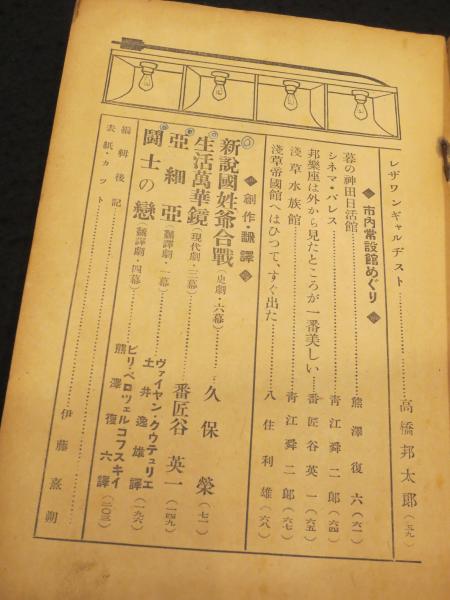 レザワンギャルヂスト……高橋邦太郎(五九)
◆市内常設館めぐり◆
暮の神田日活館……熊澤復六(六一)
シネマ・パレス……青江舜二郎(六四)
邦樂座は外から見たところが一番美しい……番匠谷英一(六五)
淺草水族館……青江舜二郎(六七)
淺草帝國館へはひつて、すぐ出た……八住利雄(六八)
創作・飜譯
新說國姓爺合戰(史劇・六幕)……久保榮(七一)
生活萬華鏡(現代劇・三幕)……番匠谷英一(一四九)
亞細亞(飜譯劇・一幕)……ヴァイヤン・クウテュリエ 土井逸雄譯(一九六)
鬪士の戀(飜譯劇・四幕)……ビリ・ベロツェルコフスキイ 熊澤復六譯(二〇三)
編輯後記
表紙・カット……伊藤熹朔